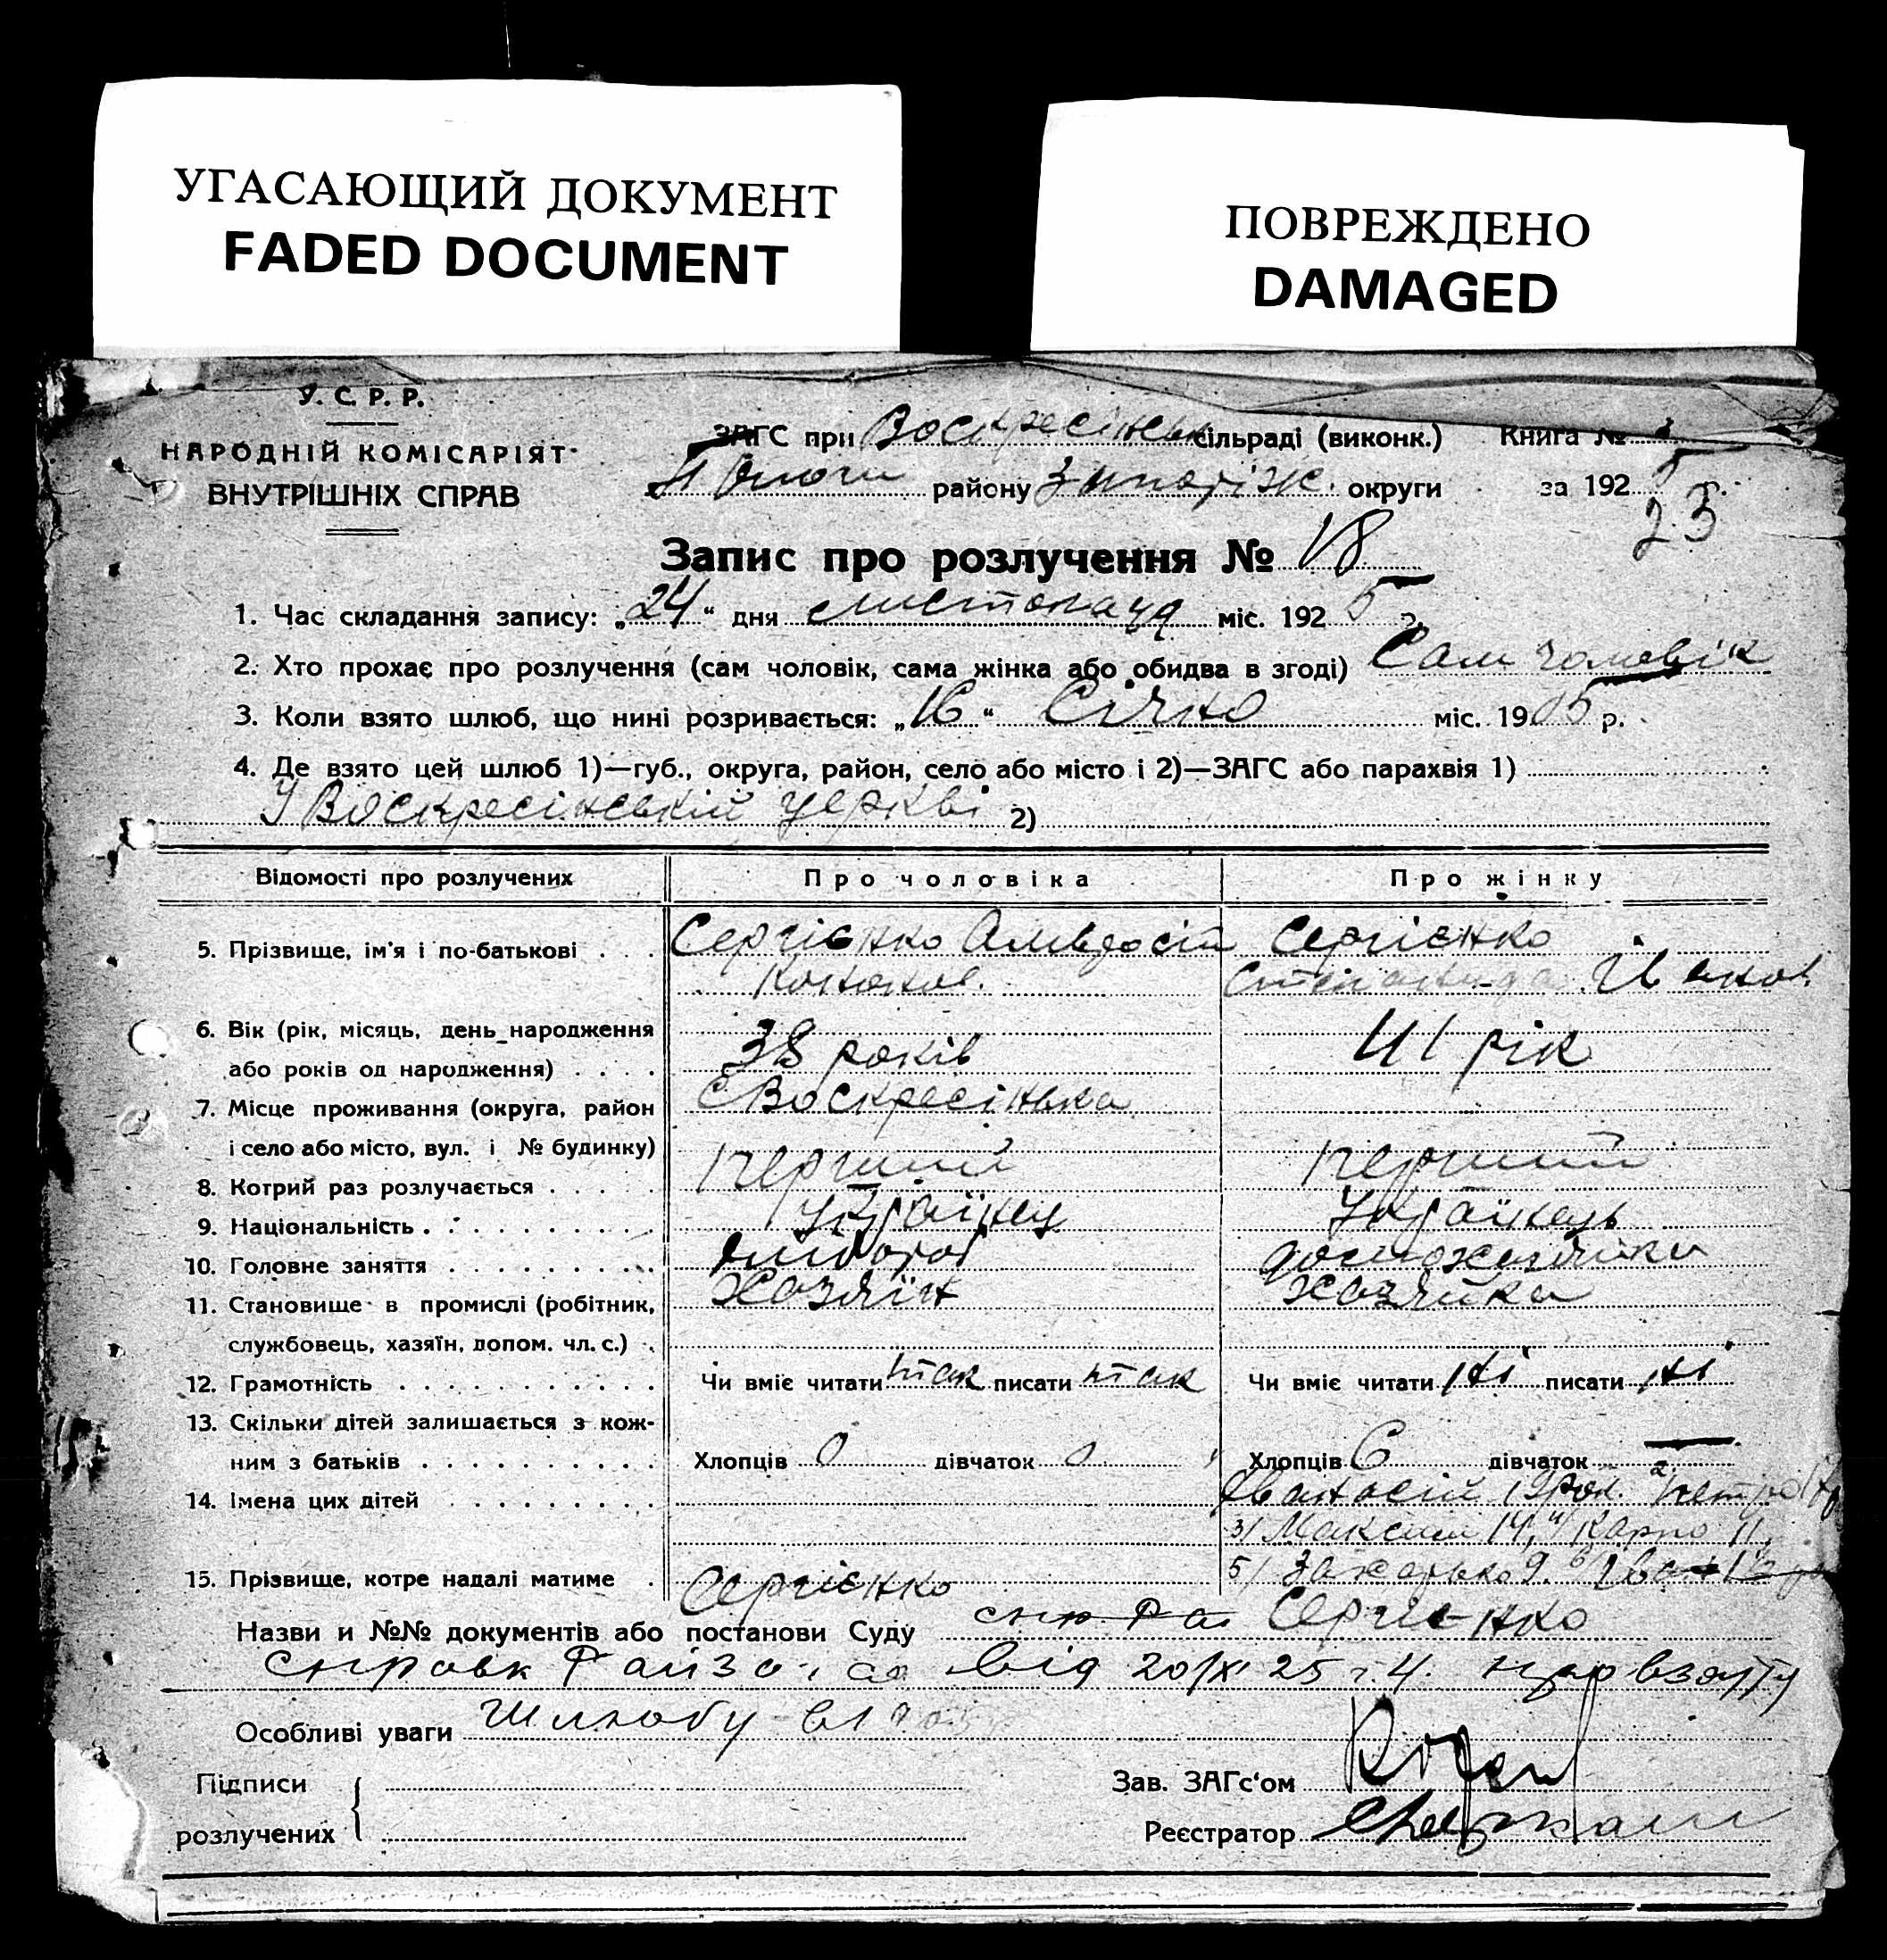 УГАСАЮЩИЙ ДОКУМЕНТ
FADED DOCUMENT
ПОВРЕЖДЕНО
DAMAGED
У. С. Р. Р.
НАРОДНІЙ КОМІСАРІЯТ
ВНУТРІШНІХ СПРАВ
ЗАГС при Воскресінськ сільраді (виконк.) Книга №
району округи за 192 5
23
Запис про розлучення № 18
1. Час складання запису: „24“ дня листопада міс. 192 5 р.
2. Хто прохає про розлучення (сам чоловік, сама жінка або обидва в згоді) Сам чоловік
3. Коли взято шлюб, що нині розривається: „16“ Січно міс. 1905 р.
4. Де взято цей шлюб 1)—губ., округа, район, село або місто і 2)—ЗАГС або парахвія 1)
У Воскресінській церкві 2)
Відомості про розлучених Про чоловіка Про жінку
5. Прізвище, ім'я і по-батькові . . . Сергієнко Сергієнко
6. Вік (рік, місяць, день народження
або років од народження) . . . . 38 років 41 рік
7. Місце проживання (округа, район с Воскресінька
і село або місто, вул. і № будинку)
8. Котрий раз розлучається . . . . . перший перший
9. Національність . . . . . . . . . Українец Українець
10. Головне заняття . . . . . . . . . хлібороб домохазяйка
11. Становище в промислі (робітник, Хозяїн Хазяйка
службовець, хазяїн, допом. чл. с.) .
12. Грамотність . . . . . . . . . . . Чи вміє читати так писати так Чи вміє читати ні писати ні
13. Скільки дітей залишається з кож-
ним з батьків . . . . . . . . . . Хлопців 0 дівчаток 0 Хлопців 6 дівчаток —
14. Імена цих дітей . . . . . . . . . 2/ Петро
3/ Максим 14, 4/ Карпо 11,
15. Прізвище, котре надалі матиме . Сергієнко 5/ Захарько 9. 6/ Іван
Назви и №№ документів або постанови Суду Сергиєнко
справк від 20/XI 25 про взяття
Особливі уваги Шлюбу в 1905
Підписи Зав. ЗАГс‘ом
розлучених Реєстратор